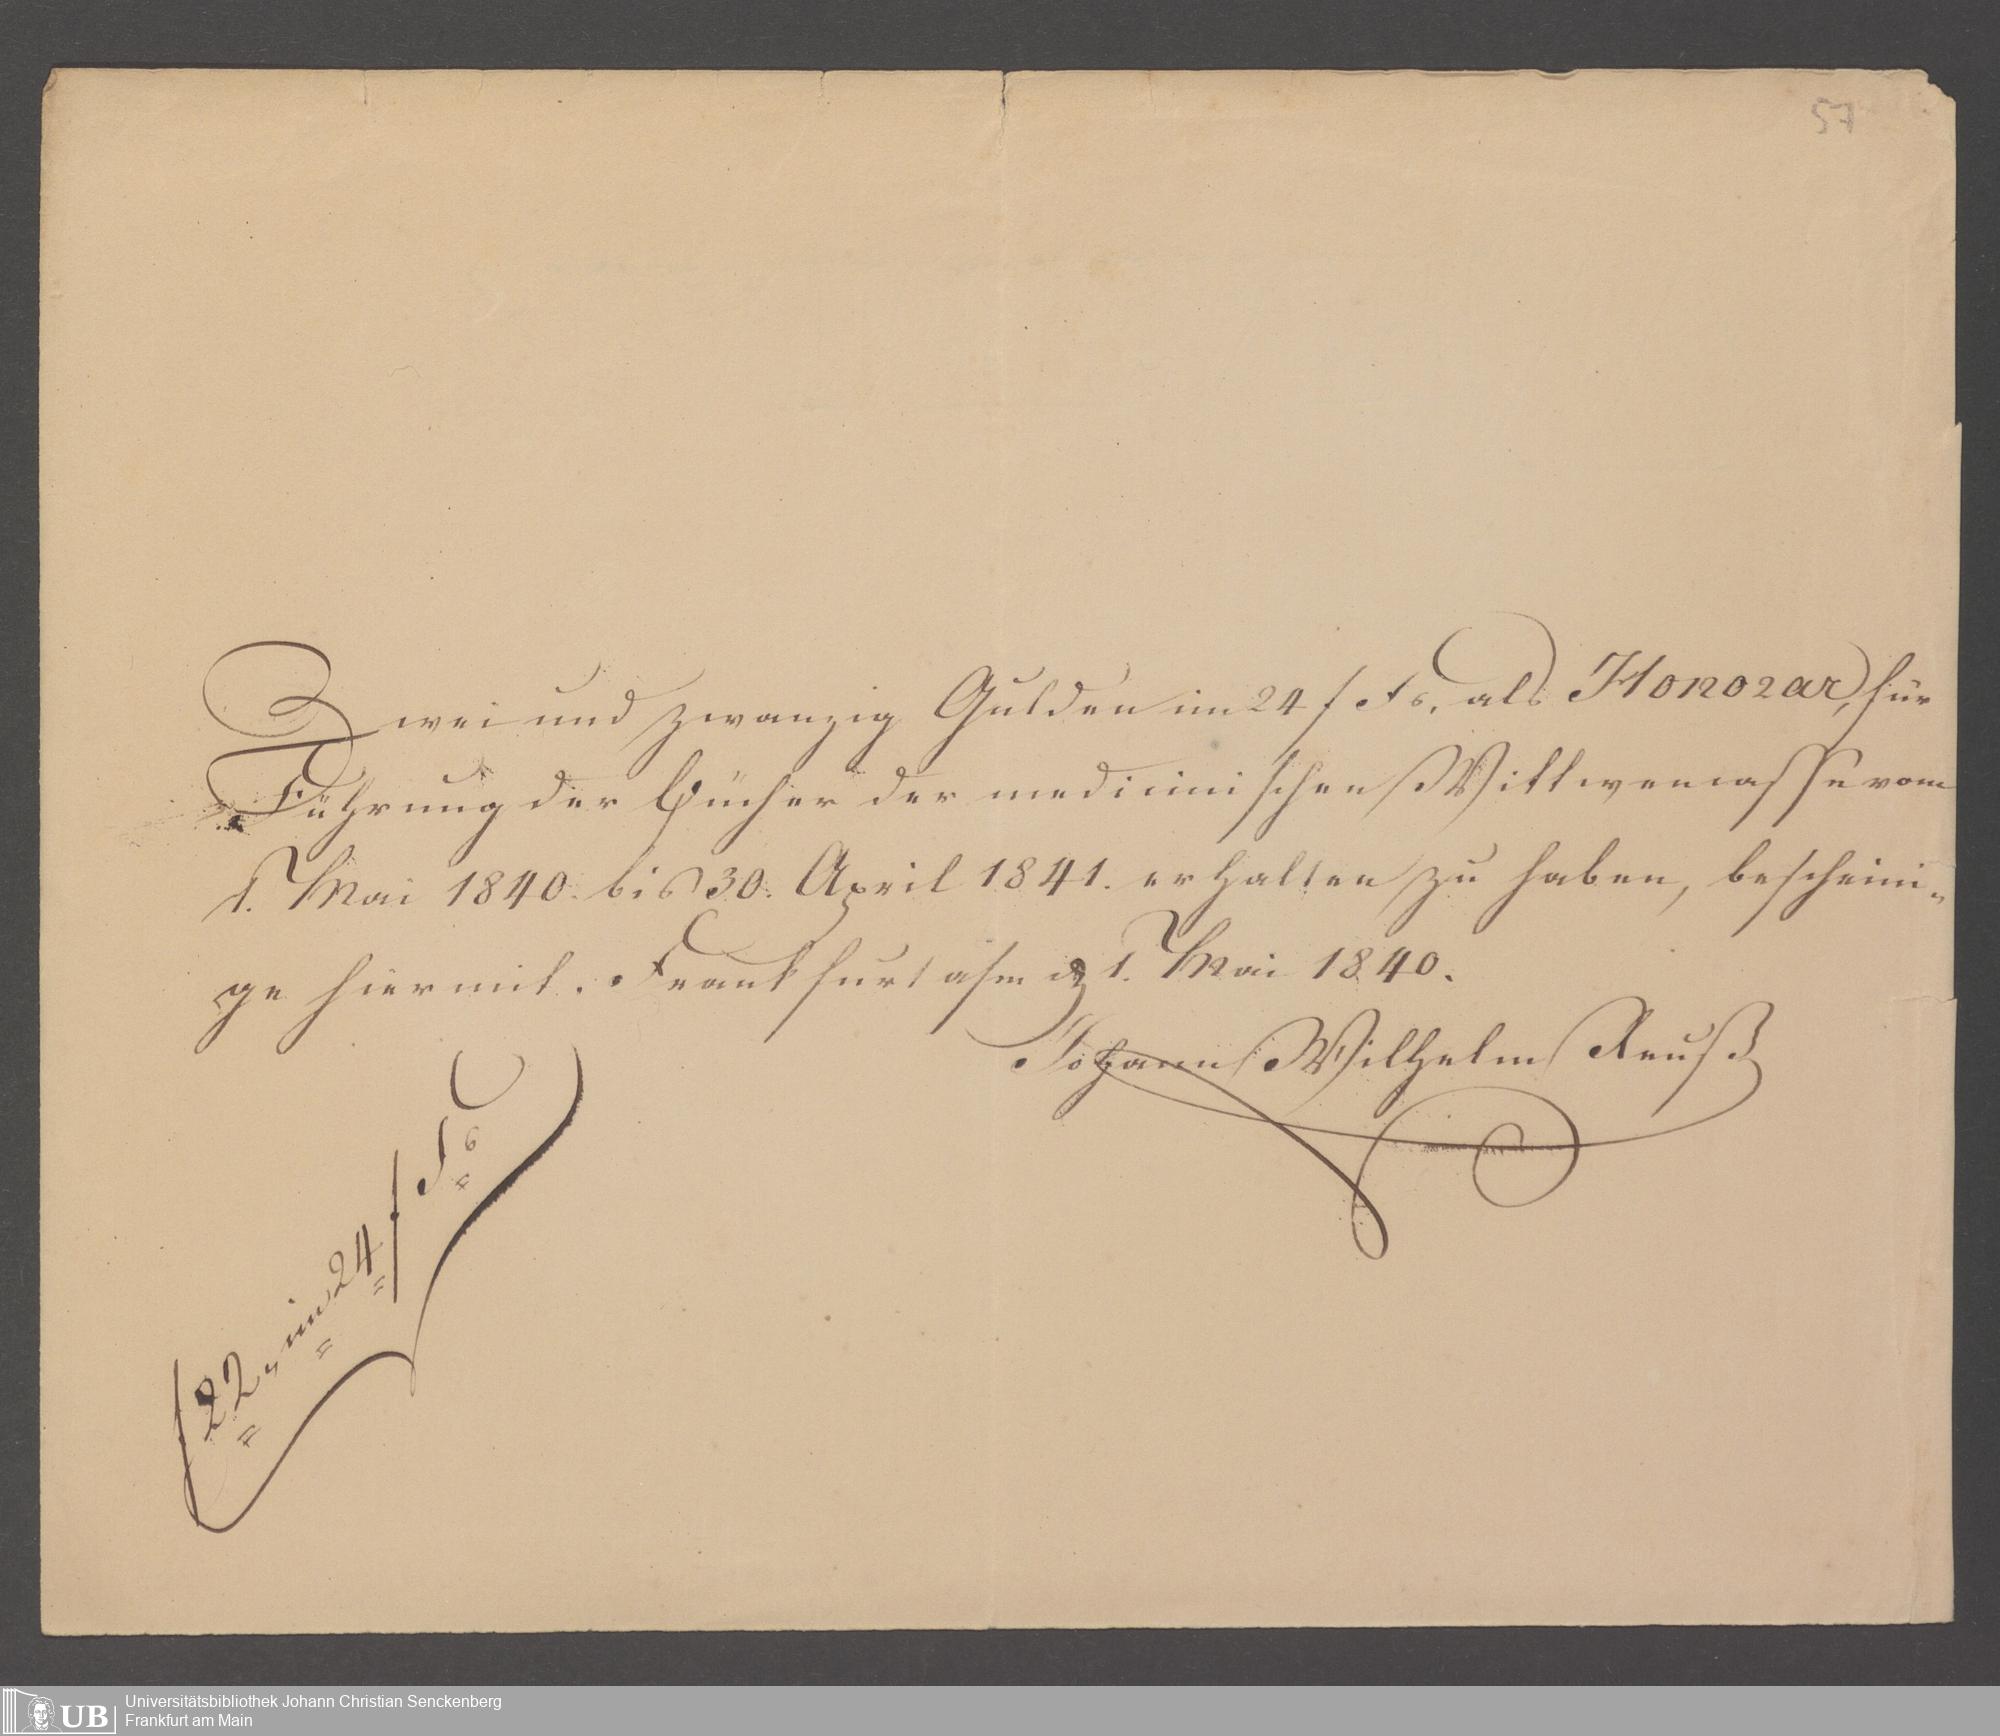 57
Zwei und zwanzig Gulden im 24 f Fs. als Honorar, für
Führung der Bücher der medicinischen Wittwencasse vom
1. Mai 1840 bis 30. April 1841. erhalten zu haben, bescheini-
ge hiermit. Frankfurt a/m d 1. Mai 1840.
Johann Wilhelm Reuß
f 22 „ im 24 f Fs
UB
Universitätsbibliothek Johann Christian Senckenberg
Frankfurt am Main